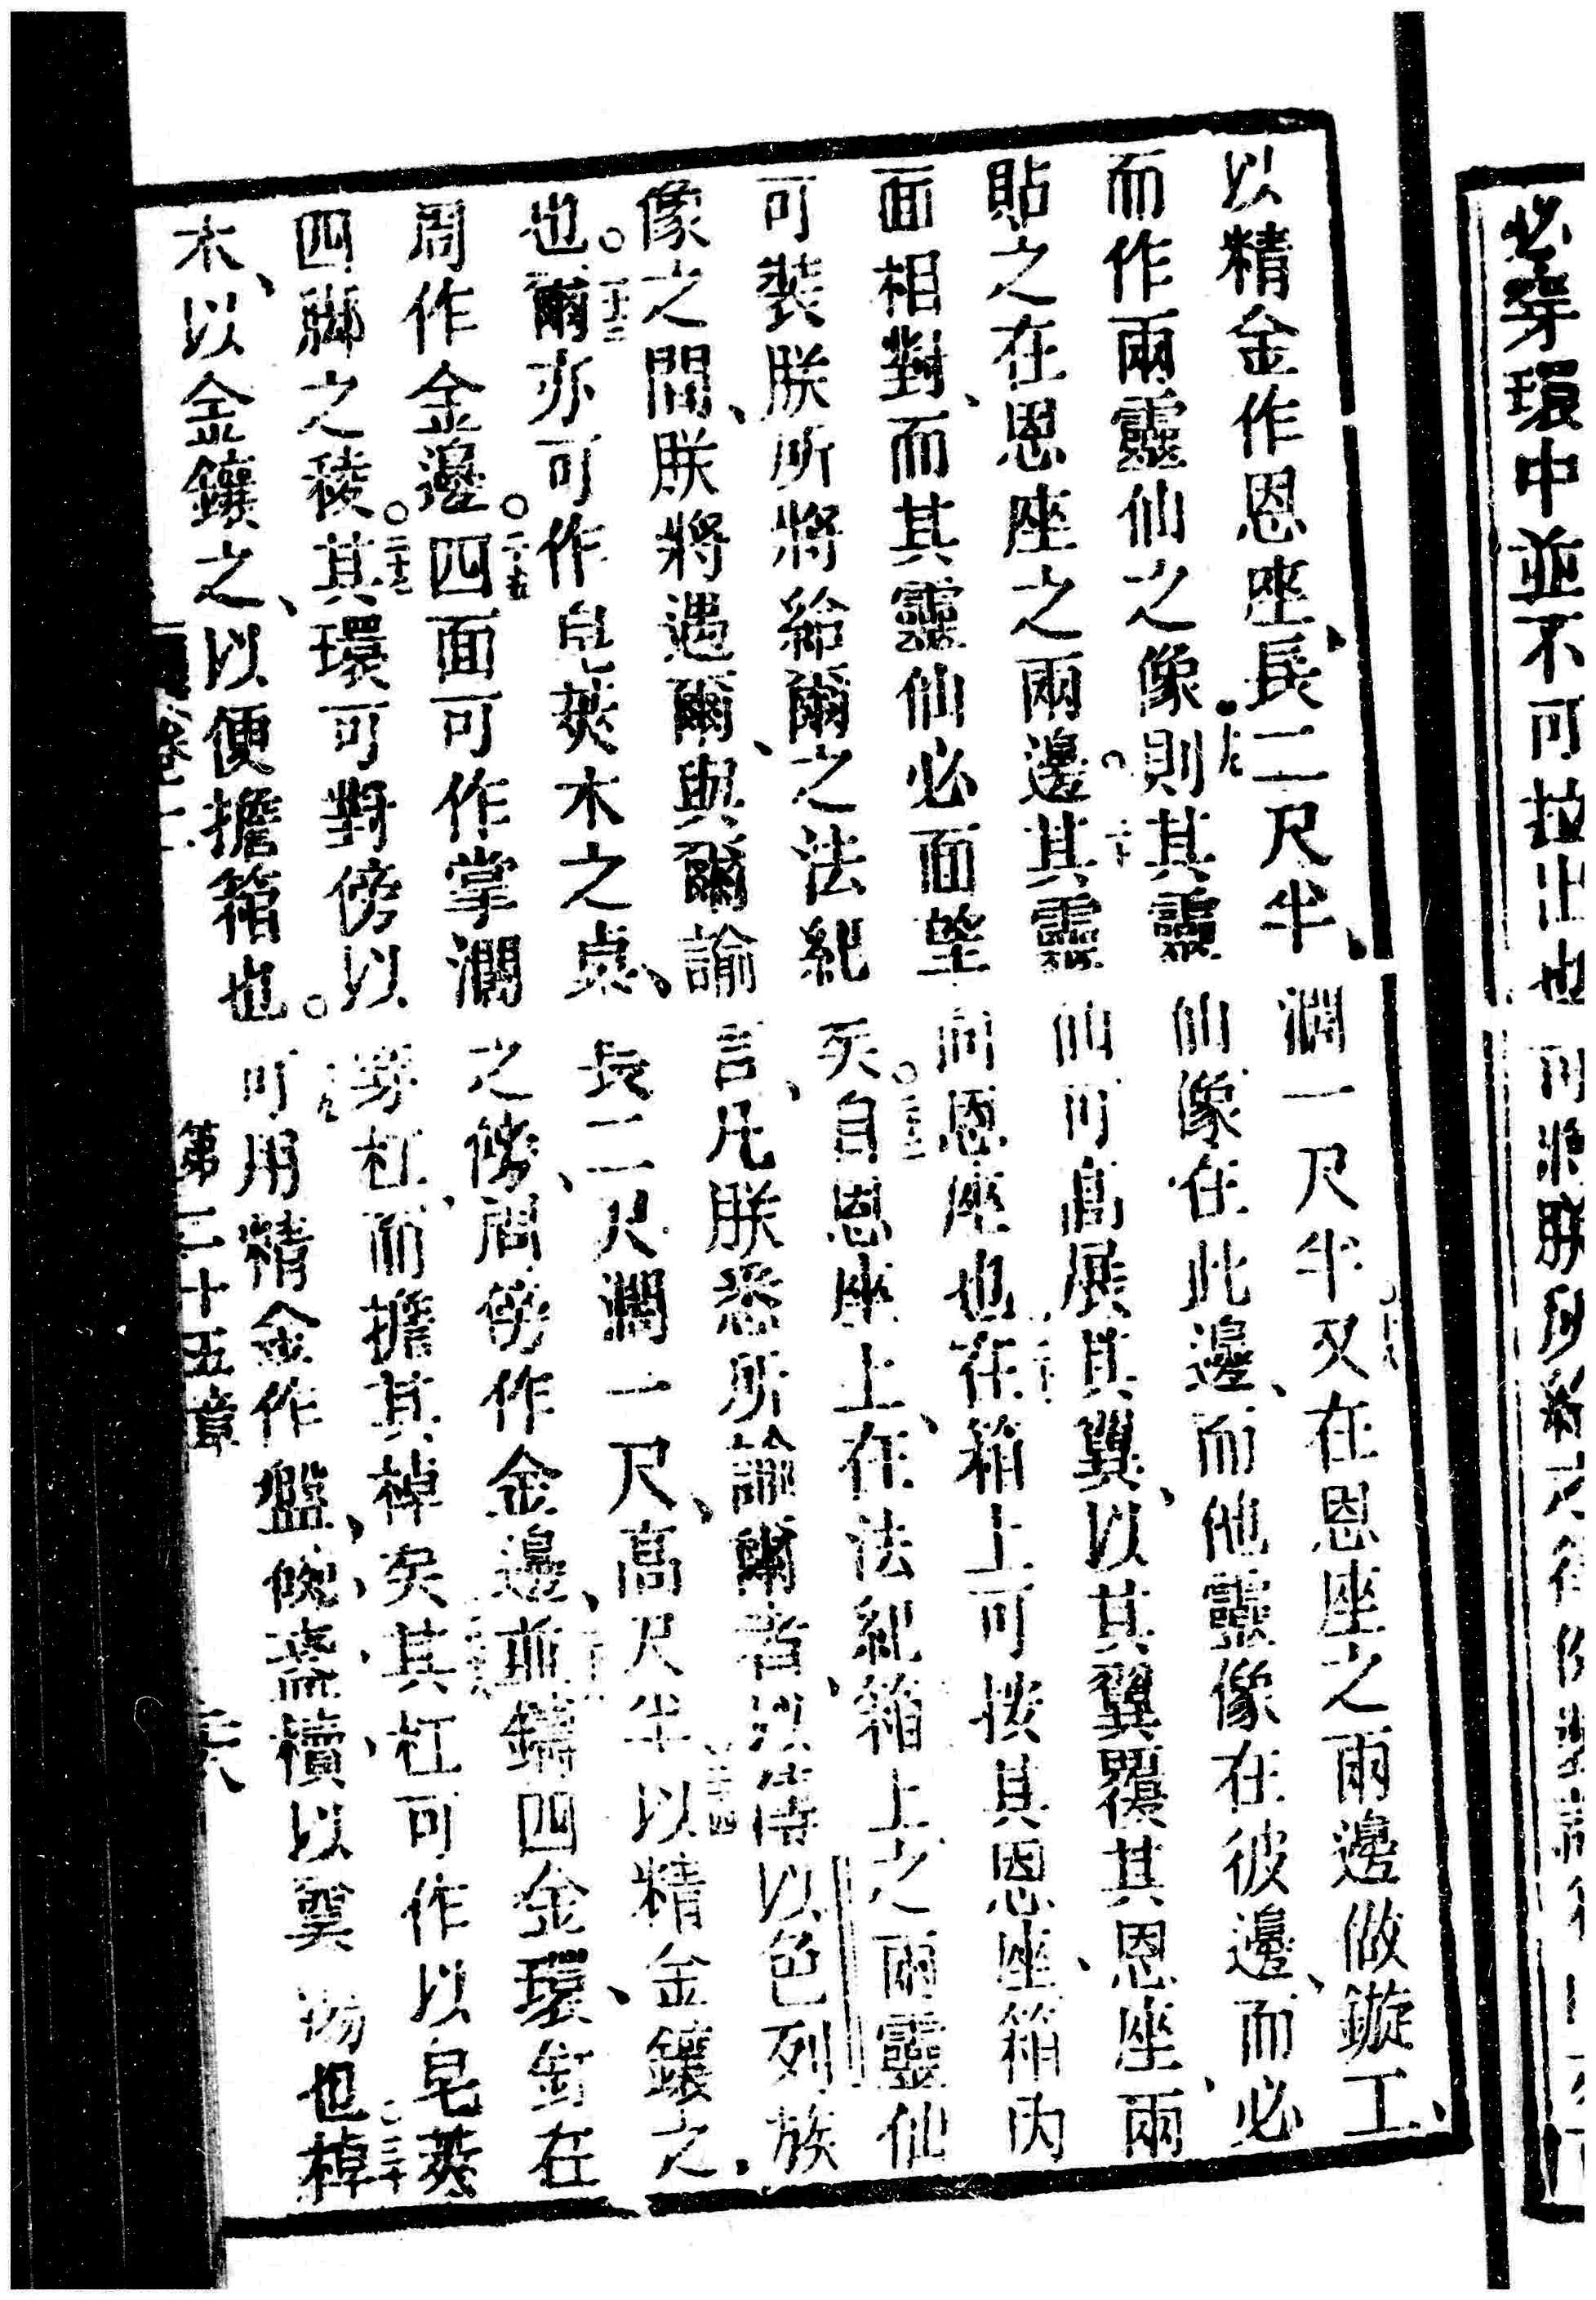 必穿環中並不可拉出也
以精金作恩座長二尺半、濶一尺半又在恩座之兩邊做鏇工、
而作兩靈仙之像則其靈仙像在此邊、而他靈像在彼邊、而必
貼之在恩座之兩邊。二十其靈仙可高展其翼、以其翼覆其恩座、兩
面相對、而其靈仙必面望向恩座也二十一在箱上可按其恩座、箱內
可裝朕所將給爾之法紀矣。二十二自恩座上、在法紀箱上之兩靈仙
像之間、朕將遇爾、與爾諭言、凡朕悉所諭爾者、以傳以色列族
也。二十三爾亦可作皂莢木之桌、長二尺濶一尺、高尺半二十四以精金鑲之
周作金邊。二十五四面可作掌濶之傍、周傍作金邊、二十六並鑄四金環、釘在
四脚之稜。二十七其環可對傍以穿杠、而擔其棹矣二十八其杠可作以皂莢
木、以金鑲之、以便擔箱也。二十九可用精金作盤、𥁕、以奠 湯也三十棹
第二十五章